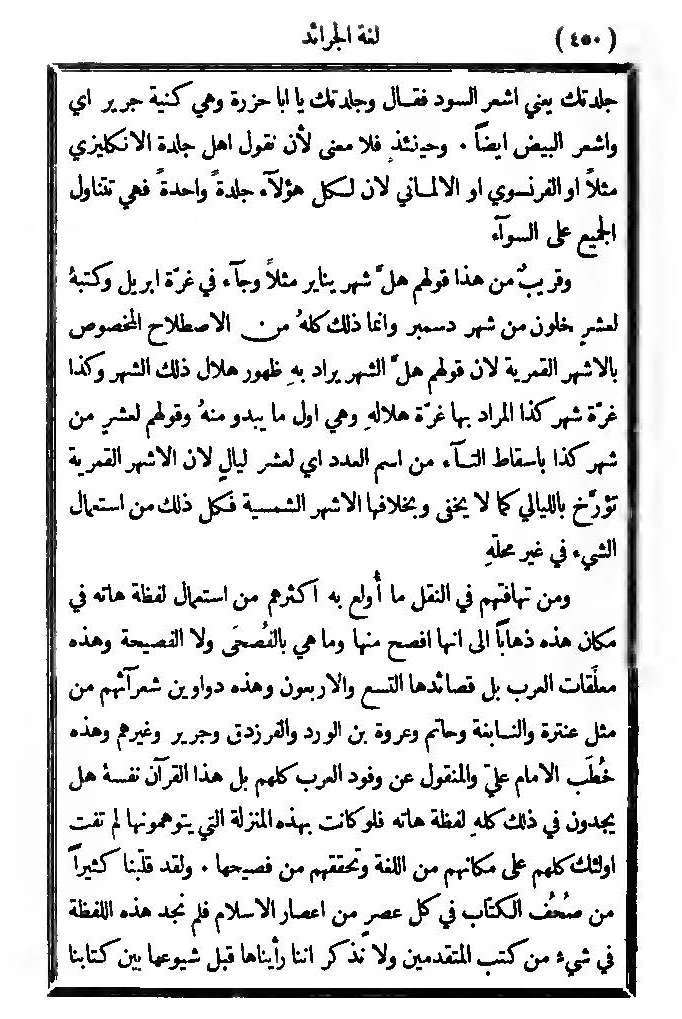 ( ٤٥٠ ) لغة الجرائد
جلدتك يعني اشعر السود فقال وجلدتك يا ابا حزرة وهي كنية جرير اي
واشعر البيض ايضاً ٠ وحينئذٍ فلا معنى لأن نقول اهل جلدة الانكليزي
مثلاً او الفرنسوي او الالماني لان لكل هؤلآء جلدةً واحدةً فهي تتناول
الجميع على السوآء
وقريبٌ من هذا قولهم هلّ شهر يناير مثلاً وجآء في غرّة ابريل وكتبهُ
لعشرٍ خلون من شهر دسمبر وانما ذلك كلهُ من الاصطلاح المخصوص
بالاشهر القمرية لان قولهم هلّ الشهر يراد بهِ ظهور هلال ذلك الشهر وكذا
غرّة شهر كذا المراد بها غرّة هلالهِ وهي اول ما يبدو منهُ وقولهم لعشرٍ من
شهر كذا باسقاط التآء من اسم العدد اي لعشر ليالٍ لان الاشهر القمرية
تؤرَّخ بالليالي كما لا يخفى وبخلافها الاشهر الشمسية فكل ذلك من استعمال
الشيء في غير محلّهِ
ومن تهافتهم في النقل ما أُولع به اكثرهم من استعمال لفظة هاته في
مكان هذه ذهاباً الى انها افصح منها وما هي بالفُصحَى ولا الفصيحة وهذه
معلَّقات العرب بل قصائدها التسع والاربعون وهذه دواوين شعرآئهم من
مثل عنترة والنابغة وحاتم وعروة بن الورد والفرزدق وجرير وغيرهم وهذه
خُطَب الامام عليّ والمنقول عن وفود العرب كلهم بل هذا القرآن نفسهُ هل
يجدون في ذلك كلهِ لفظة هاته فلو كانت بهذه المنزلة التي يتوهمونها لم تفت
اولئك كلهم على مكانهم من اللغة وتحققهم من فصيحها ٠ ولقد قلّبنا كثيراً
من صُحُف الكتاب في كل عصرٍ من اعصار الاسلام فلم نجد هذه اللفظة
في شيءٍ من كتب المتقدمين ولا نذكر اننا رأيناها قبل شيوعها بين كتابنا